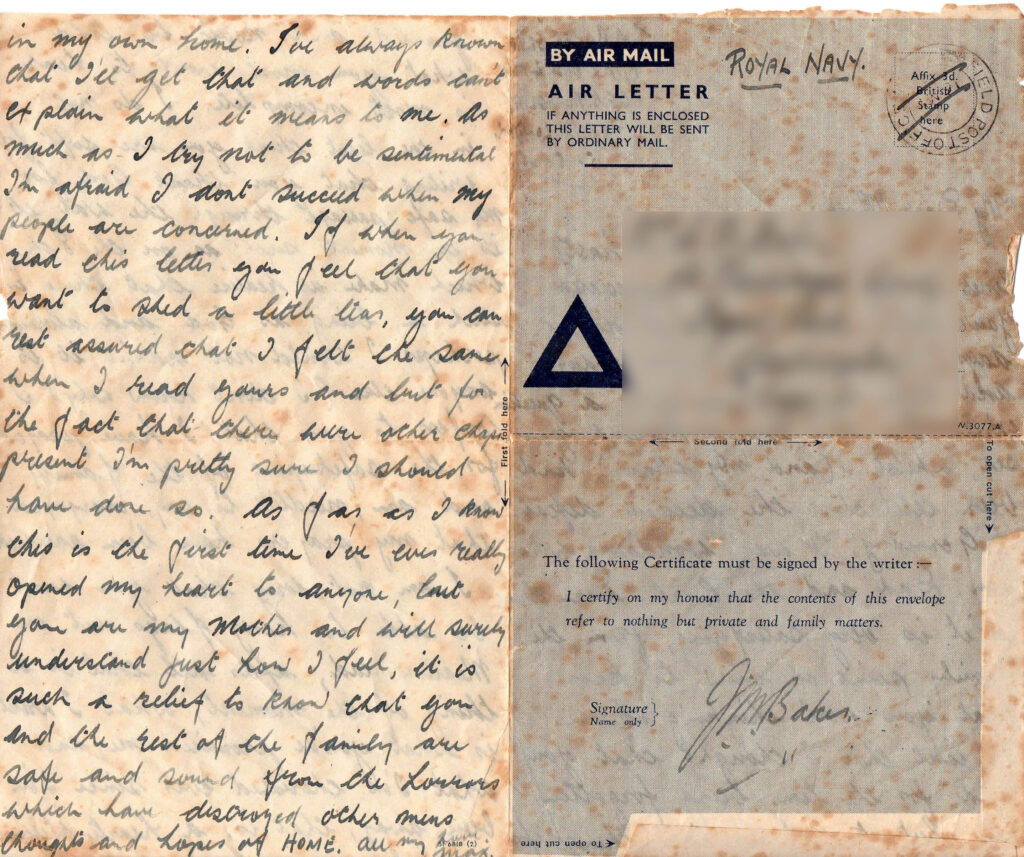 in my own home. I've always known
that I'll get that and words can't
explain what it means to me. As
much as I try not to be sentimental
I'm afraid I dont succeed when my
people are concerned. If when you
read this letter you feel that you
want to shed a little tear, you can
rest assured that I felt the same
when I read yours and but for
the fact that there were other chaps
present I'm pretty sure I should
have done so. As far as I know
this is the first time I've ever really
opened my heart to anyone, but
you are my Mother and will surely
understand just how I feel, it is
such a relief to know that you
and the rest of the family are
safe and sound from the horrors
which have destroyed other mens
thoughts and hopes of HOME. All my
BY AIR MAIL
AIR LETTER
IF ANYTHING IS ENCLOSED
THIS LETTER WILL BE SENT
BY ORDINARY MAIL.
ROYAL NAVY.
Affix 3d.
British
Stamp
here
FIELD POST OFFICE
First fold here
Second fold here
To open cut here
The following Certificate must be signed by the writer:—
I certify on my honour that the contents of this envelope
refer to nothing but private and family matters.
Signature
Name only
JMBaker
To open cut here